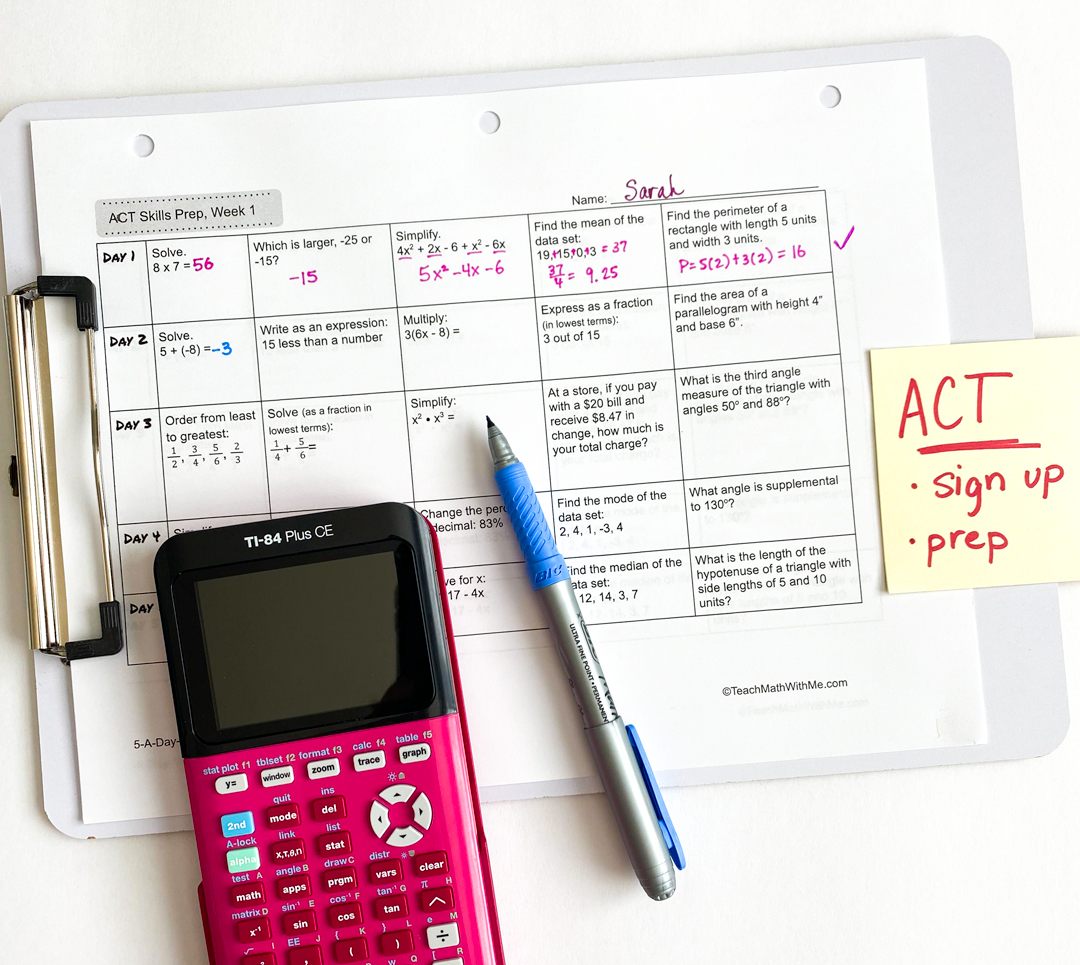 Name: Sarah
ACT Skills Prep, Week 1
DAY 1
Solve.
8 x 7 = 56
Which is larger, -25 or
-15?
-15
Simplify.
4x² + 2x - 6 + x² - 6x
5x² - 4x - 6
Find the mean of the
data set:
19, 15, 0, 3 = 37
37/4 = 9.25
Find the perimeter of a
rectangle with length 5 units
and width 3 units.
P = 5(2) + 3(2) = 16
✓
DAY 2
Solve.
5 + (-8) = -3
Write as an expression:
15 less than a number
Multiply:
3(6x - 8) =
Express as a fraction
(in lowest terms):
3 out of 15
Find the area of a
parallelogram with height 4"
and base 6".
DAY 3
Order from least
to greatest:
1/2, 3/4, 5/6, 2/3
Solve (as a fraction in
lowest terms):
1/4 + 5/6 =
Simplify:
x² • x³ =
At a store, if you pay
with a $20 bill and
receive $8.47 in
change, how much is
your total charge?
What is the third angle
measure of the triangle with
angles 50º and 88º?
DAY 4
Change the
decimal: 83%
Find the mode of the
data set:
2, 4, 1, -3, 4
What angle is supplemental
to 130º?
DAY
for x:
17 - 4x
Find the median of the
data set:
12, 14, 3, 7
What is the length of the
hypotenuse of a triangle with
side lengths of 5 and 10
units?
©TeachMathWithMe.com
5-A-Day-
ACT
• sign up
• prep
BIC
ULTRA FINE POINT • PERMANENT
TI-84 Plus CE
stat plot f1 tblset f2 format f3 calc f4 table f5
y= window zoom trace graph
quit ins
2nd mode del
A-lock link list
alpha X,T,θ,n stat
test A angle B draw C distr
math apps prgm vars clear
matrix D sin⁻¹ E cos⁻¹ F tan⁻¹ G π H
x⁻¹ sin cos tan ^
√ I EE J { K } L e M
x² , ( ) ÷
W Q R